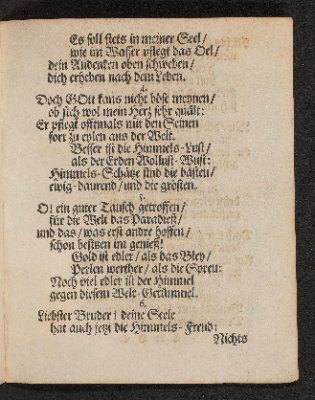 Es soll stets in meiner Seel/
wie im Wasser pflegt das Oel/
dein Andenken oben schweben/
dich erheben nach dem Leben.
4.
Doch GOtt kans nicht böse meynen/
ob sich wol mein Herz sehr quält:
Er pflegt offtmals mit den Seinen
fort zu eylen aus der Welt.
Besser ist die Himmels-Lust/
als der Erden Wollust-Wust:
Himmels-Schätze sind die bästen/
ewig-daurend/und die grösten.
5.
O! ein guter Tausch getroffen/
für die Welt das Paradieß/
und das/was erst andre hoffen/
schon besitzen im genieß!
Gold ist edler/als das Bley/
Perlen werther/als die Spreu:
Noch viel edler ist der Himmel
gegen diesem Welt-Getümmel.
6.
Liebster Bruder! deine Seele
hat auch jetzt die Himmels-Freud:
Nichts